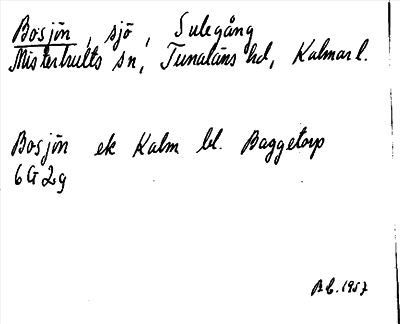 Bosjön, sjö, Sulegång
Misterhults sn, Tunaläns hd, Kalmar l.
Bosjön ek Kalm bl. Baggetorp
6G2g
1957